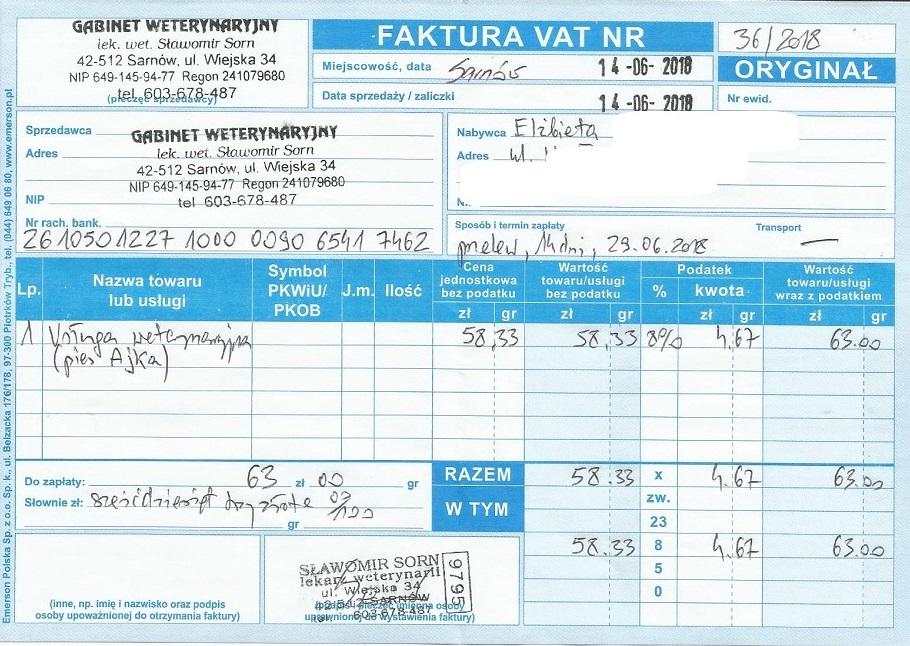 GABINET WETERYNARYJNY
lek. wet. Sławomir Sorn
42-512 Sarnów, ul. Wiejska 34
NIP 649-145-94-77 Regon 241079680
tel. 603-678-487
(pieczęć sprzedawcy)
FAKTURA VAT NR 36/2018
Miejscowość, data Sarnów 14-06-2018
ORYGINAŁ
Data sprzedaży / zaliczki 14-06-2018
Nr ewid.
Sprzedawca GABINET WETERYNARYJNY
Adres lek. wet. Sławomir Sorn
42-512 Sarnów, ul. Wiejska 34
NIP 649-145-94-77 Regon 241079680
NIP tel 603-678-487
Nr rach. bank.
26 1050 1227 1000 0090 6541 7462
Nabywca Elżbieta
Adres ul.
N.
Sposób i termin zapłaty
przelew, 14 dni, 29.06.2018
Transport —
Lp. Nazwa towaru lub usługi Symbol PKWiU/ PKOB J.m. Ilość Cena jednostkowa bez podatku Wartość towaru/usługi bez podatku Podatek Wartość towaru/usługi wraz z podatkiem
% kwota
zł gr zł gr zł gr zł gr
1 Usługa weterynaryjna 58,33 58,33 8% 4,67 63.00
(pies Ajka)
Do zapłaty: 63 zł 00 gr
Słownie zł: sześćdziesiąt trzy złote 00/100
gr
RAZEM 58.33 x 4,67 63.00
W TYM zw.
23
58.33 8 4,67 63.00
5
0
(inne, np. imię i nazwisko oraz podpis
osoby upoważnionej do otrzymania faktury)
SŁAWOMIR SORN
lekarz weterynarii
ul. Wiejska 34
42-512 SARNÓW
tel. 603-678-487
9795
upoważnionej do wystawienia faktury)
Emerson Polska Sp. z o.o. Sp. k., ul. Belzacka 176/178, 97-300 Piotrków Tryb., tel. (044) 649 06 80, www.emerson.pl